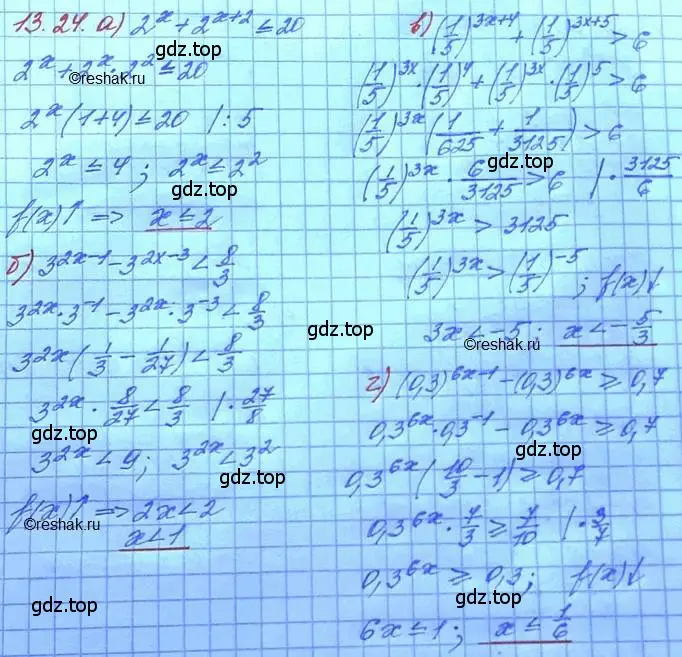 13.24. а) 2^x + 2^{x+2} ≤ 20
2^x + 2^x · 2^2 ≤ 20
2^x (1+4) ≤ 20 | : 5
2^x ≤ 4 ; 2^x ≤ 2^2
f(x)↑ => x ≤ 2
б) 3^{2x-1} - 3^{2x-3} < 8/3
3^{2x} · 3^{-1} - 3^{2x} · 3^{-3} < 8/3
3^{2x} (1/3 - 1/27) < 8/3
3^{2x} · 8/27 < 8/3 | · 27/8
3^{2x} < 9 ; 3^{2x} < 3^2
f(x)↑ => 2x < 2
x < 1
в) (1/5)^{3x+4} + (1/5)^{3x+5} > 6
(1/5)^{3x} · (1/5)^4 + (1/5)^{3x} · (1/5)^5 > 6
(1/5)^{3x} (1/625 + 1/3125) > 6
(1/5)^{3x} · 6/3125 > 6 | · 3125/6
(1/5)^{3x} > 3125
(1/5)^{3x} > (1/5)^{-5} ; f(x)↓
3x < -5 ; x < -5/3
г) (0,3)^{6x-1} - (0,3)^{6x} ≥ 0,7
0,3^{6x} · 0,3^{-1} - 0,3^{6x} ≥ 0,7
0,3^{6x} (10/3 - 1) ≥ 0,7
0,3^{6x} · 7/3 ≥ 7/10 | · 3/7
0,3^{6x} ≥ 0,3 ; f(x)↓
6x ≤ 1 ; x ≤ 1/6
gdz.top
gdz.top
©reshak.ru
gdz.top
gdz.top
gdz.top
gdz.top
©reshak.ru
gdz.top
gdz.top
©reshak.ru
gdz.top
gdz.top